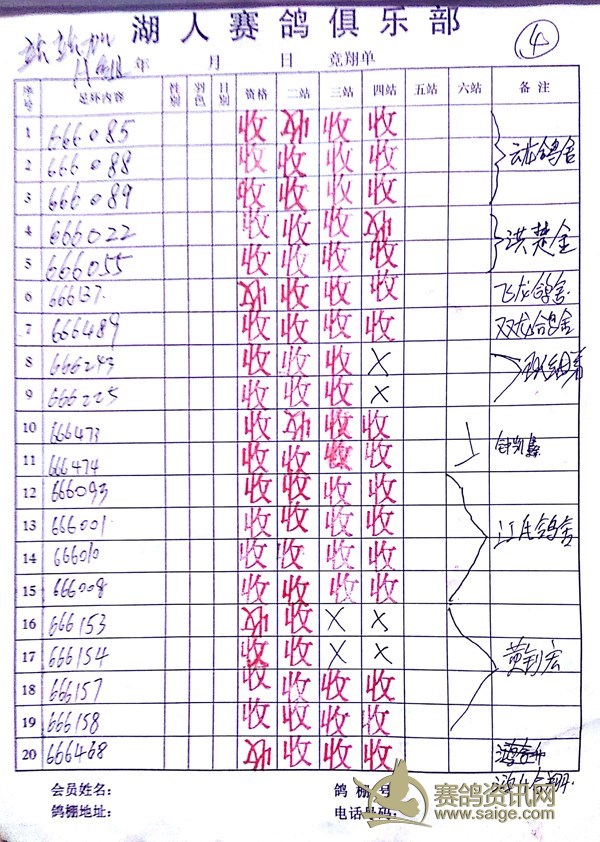 湖人赛鸽俱乐部
④
站站加
A组 年 月 日 竞翔单
序号 足环内容 性别 羽色 日别 资格 二站 三站 四站 五站 六站 备注
1 666085 收 收 收 收
2 666088 收 收 收 收 云龙鸽舍
3 666089 收 收 收 收
4 666022 收 收 收 收 洪楚金
5 666055 收 收 收 收
6 666137. 收 收 收 收 飞龙鸽舍
7 666489 收 收 收 收 双龙鸽舍
8 666243 收 收 收 X
9 666225 收 收 收 X
10 666473 收 收 收 收
11 666474 收 收 收 收
12 666093 收 收 收 收
13 666001 收 收 收 收 江氏鸽舍
14 666010 收 收 收 收
15 666008 收 收 收 收
16 666153 收 收 X X
17 666154 收 收 X X 黄钊宏
18 666157 收 收 收 收
19 666158 收 收 收 收
20 666468 收 收 收 收
会员姓名: 鸽棚号
鸽棚地址: 电话号码:
赛鸽资讯网
www.saige.com